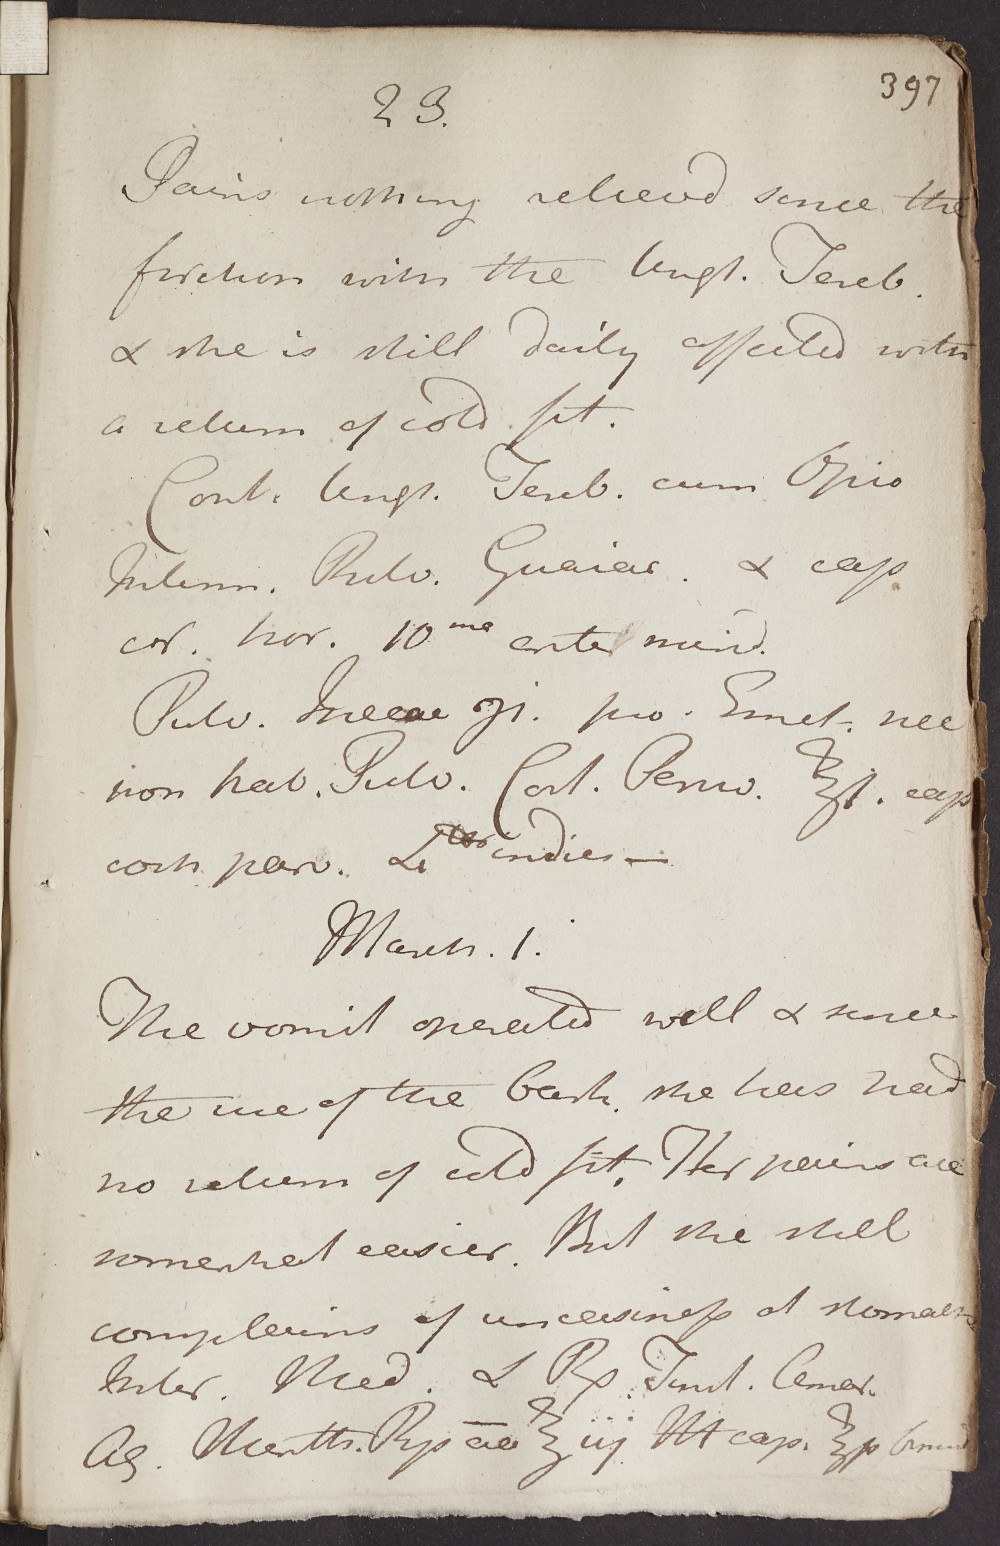 397
23.
Pains nothing relieved since the
friction with the Ungt. Tereb.
& she is still daily affected with
a return of cold fit.
Cont. Ungt. Tereb. cum Opio
Interm. Pulv. Guaiac. & cap
hor. 10 ma ante merid.
Pulv. Ipecac ℈i. pro. Emet. nec
non hab. Pulv. Cort. Peruv. ℥j. cap
coch parv. indies —
March. 1.
The vomit operated well & since
the use of the bark. she has had
no return of cold fit. Her pains are
somewhat easier. But she still
complains of uneasiness at stomach
Inter. Med. & Rx. Tinct. Amar.
Aq. Menth. Pip āā ℥iij Mt cap. ℥ß